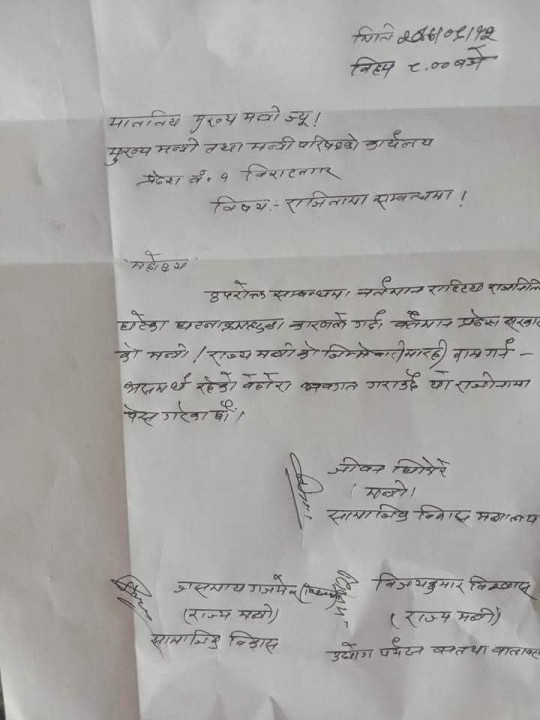 मिति २०७७/०९/१२
बिहान ८.०० बजे
माननिय मुख्य मन्त्री ज्यू !
मुख्य मन्त्री तथा मन्त्री परिषदको कार्यलय
प्रदेश नं. १ विराटनगर
विषय :- राजिनामा सम्बन्धमा !
महोदय
उपरोक्त सम्बन्धमा वर्तमान राष्ट्रिय राजनिति
घटेका घटनाक्रमहरुका कारणले गर्दा वर्तमान प्रदेश सरकार
को मन्त्री / राज्य मन्त्री को जिम्मेवारीमा रही काम गर्न -
असमर्थ रहेको बेहोरा अवगत गराउँदै यो राजीनामा
पेस गरेका छौं।
जीवन घिमिरे
(मन्त्री)
सामाजिक विकास मन्त्रालय
जसमाया गजमेर
(राज्य मन्त्री)
सामाजिक विकास
विजयकुमार विश्वास
(राज्य मन्त्री)
उद्योग पर्यटन वन तथा वातावरण